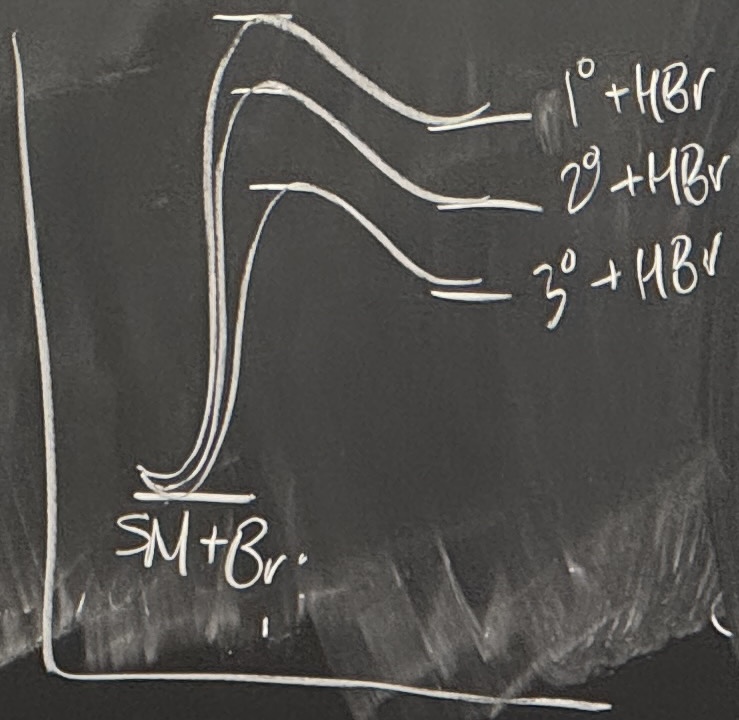 1° + HBr
2° + HBr
3° + HBr
SM + Br·